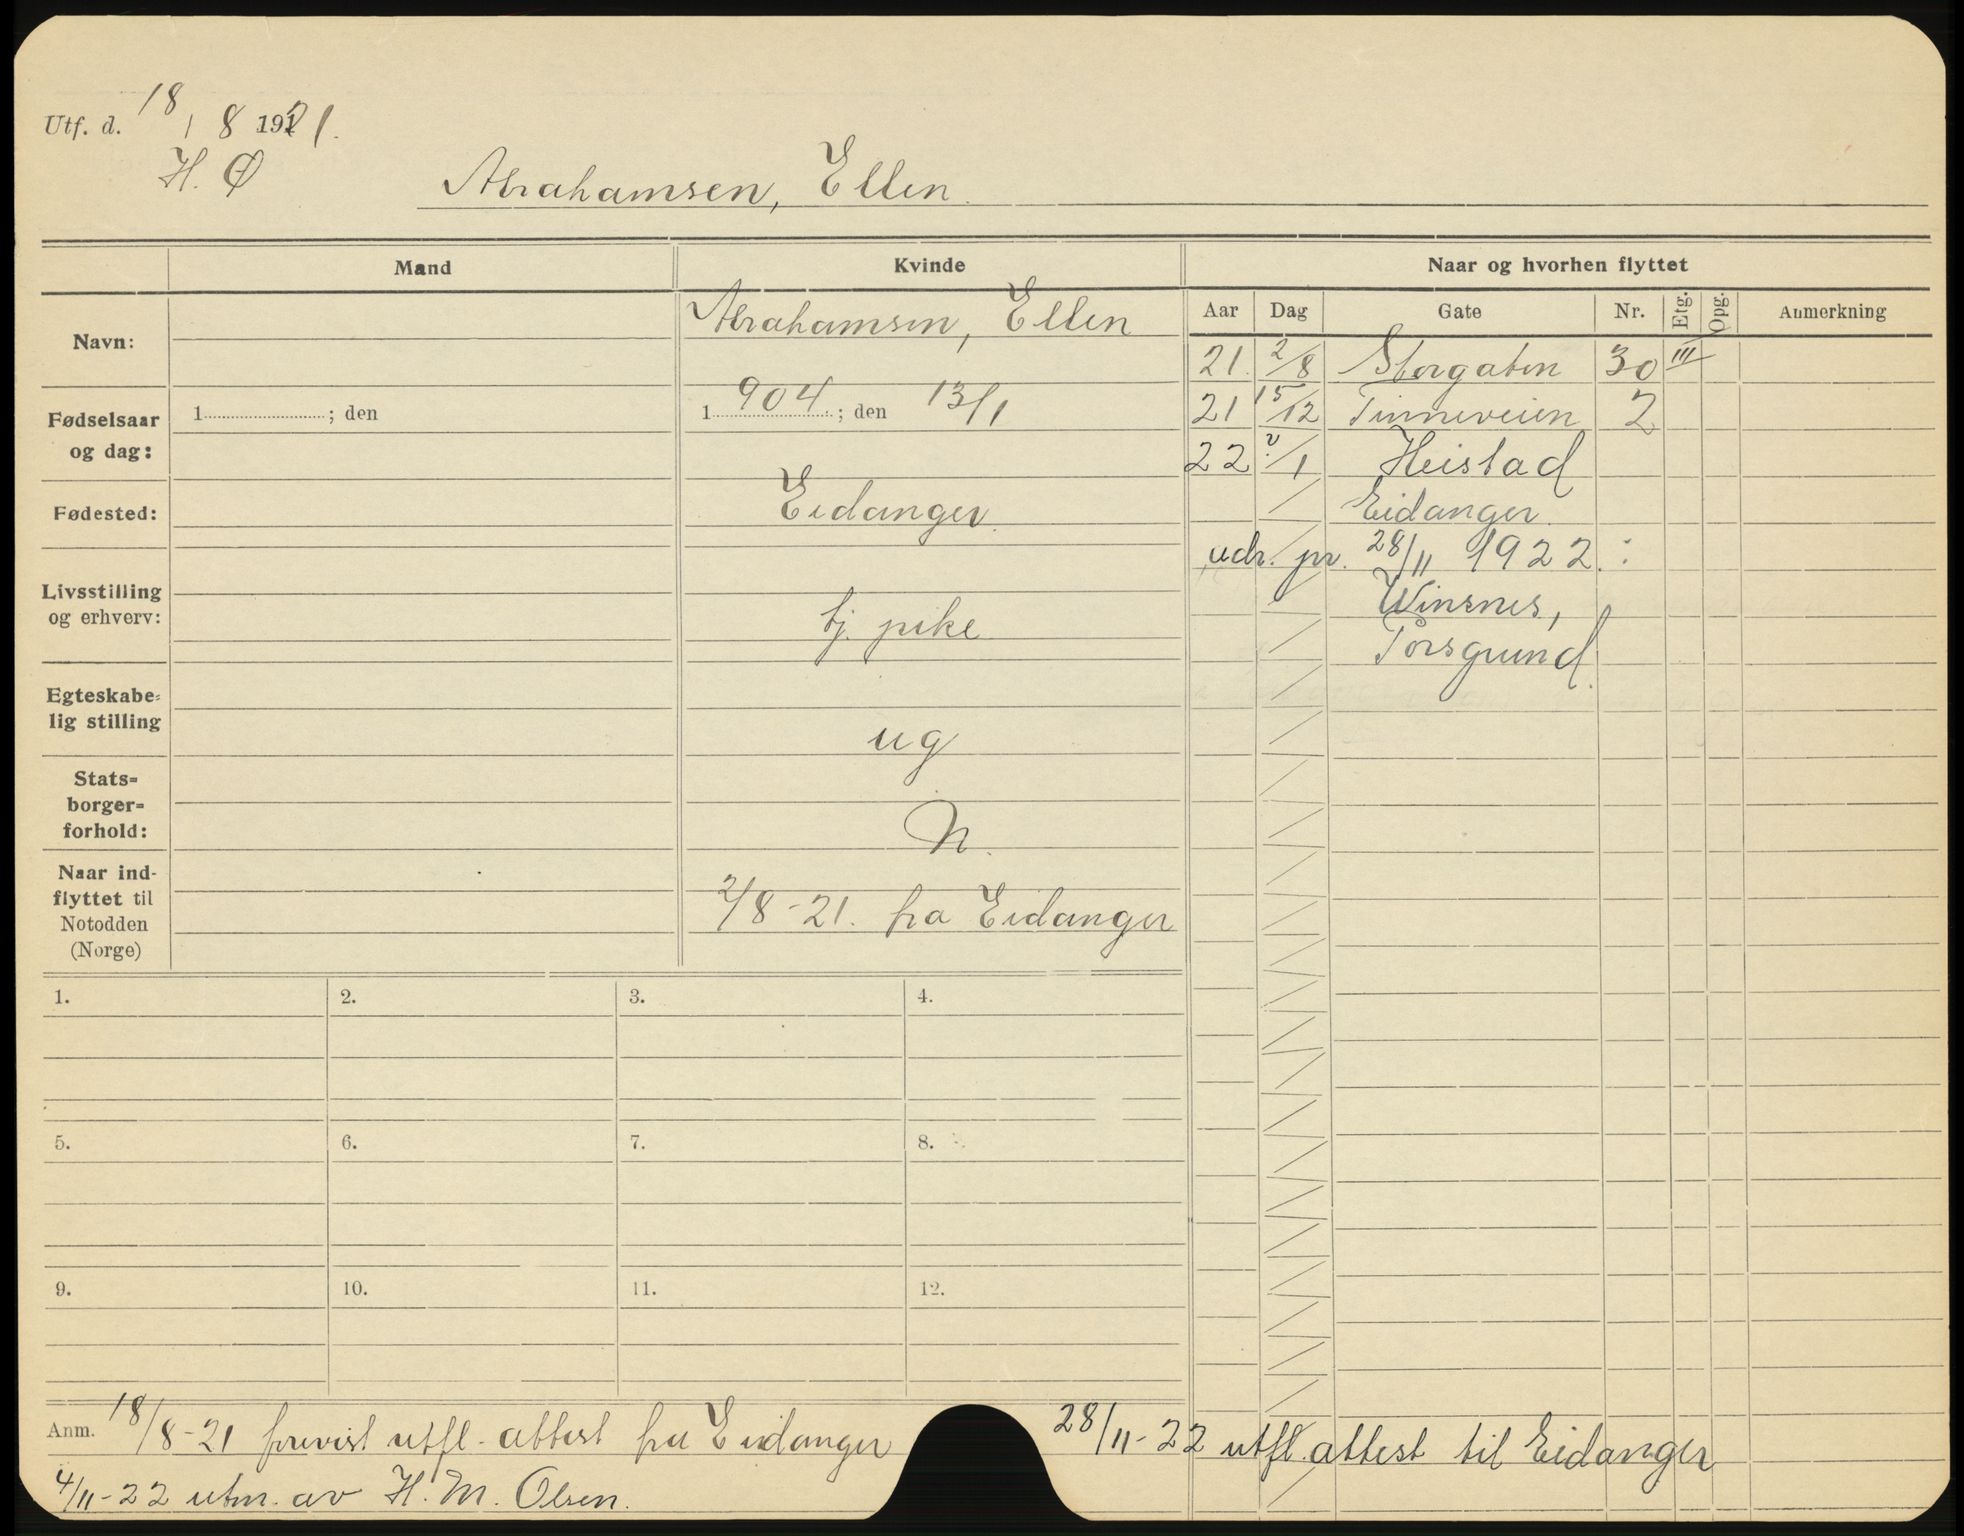 Utf. d. 18/8 1921.
H. Ø
Abrahamsen, Ellen.
Mand
Kvinde
Naar og hvorhen flyttet
Aar Dag Gate Nr. Etg. Opg. Anmerkning
Navn:
Abrahamsen, Ellen
Fødselsaar
og dag:
1 ; den
1 904 ; den 13/1
Fødested:
Eidanger.
Livsstilling
og erhverv:
tj. pike
Egteskabe-
lig stilling
ug
Stats-
borger-
forhold:
N.
Naar ind-
flyttet til
Notodden
(Norge)
2/8-21. fra Eidanger
21. 2/8 Storgaten 30 III
21 15/12 Tinneveien 2
22 /1 Heistad
Eidanger.
udr. pr. 28/11 1922.:
Winsnes,
Porsgrund.
1. 2. 3. 4.
5. 6. 7. 8.
9. 10. 11. 12.
Anm. 18/8-21 forevist utfl. attest fra Eidanger
28/11-22 utfl. attest til Eidanger
4/11-22 utm. av H. M. Olsen.